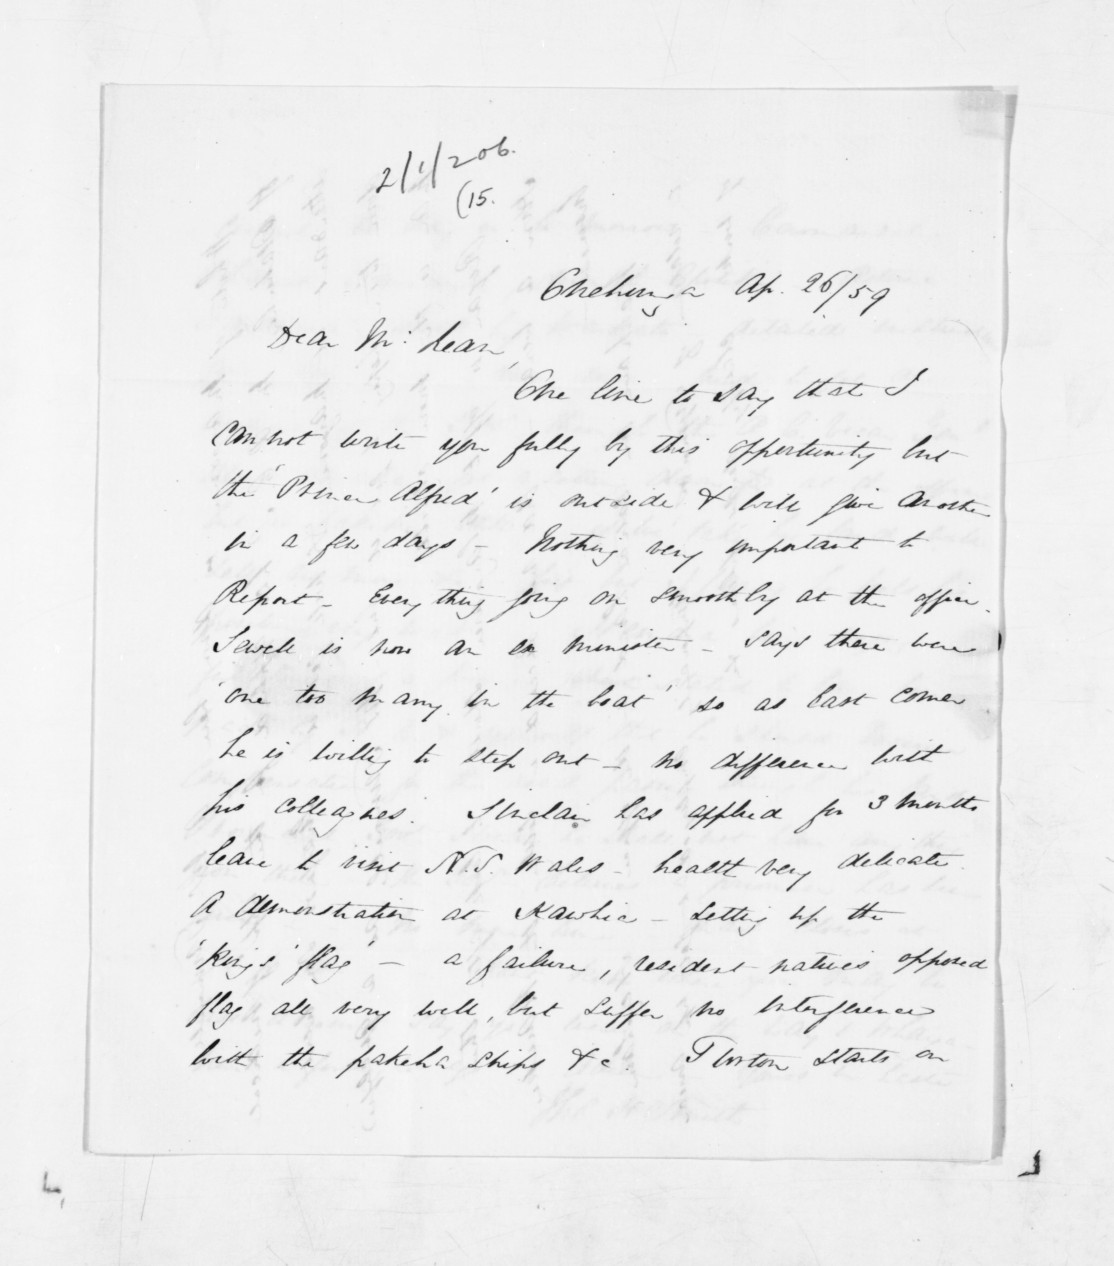 2/1/206.
(15.
Onehunga Ap. 26/59
Dear Mc.Lean,
One line to say that I
cannot write you fully by this opportunity but
the 'Prince Alfred' is outside & will give another
in a few days - Nothing very important to
Report - Every thing going on smoothly at the office.
Sewell is now an ex minister - says there were
'one too many in the boat' so as last comer
he is willing to step out - no difference with
his colleagues'. Sinclair has applied for 3 months
leave to visit N.S. Wales - health very delicate.
A demonstration at Kawhia - setting up the
'King's' flag' - a failure, resident natives opposed
flag all very well, but suffer no interference
with the pakeha ships &c. Turton starts on